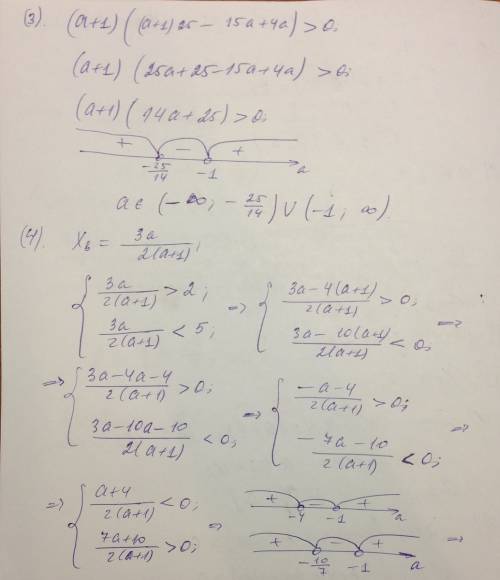 (3). (a+1)((a+1)25 - 15a+4a) > 0;
(a+1)(25a+25-15a+4a) > 0;
(a+1)(14a+25) > 0;
+ - +
-25/14 -1 a
a ∈ (-∞; -25/14) ∪ (-1; ∞).
(4). X_b = 3a/2(a+1);
{ 3a/2(a+1) > 2; 3a/2(a+1) < 5; => { 3a-4(a+1)/2(a+1) > 0; 3a-10(a+1)/2(a+1) < 0; =>
=> { 3a-4a-4/2(a+1) > 0; 3a-10a-10/2(a+1) < 0; => { -a-4/2(a+1) > 0; -7a-10/2(a+1) < 0; =>
=> { a+4/2(a+1) < 0; 7a+10/2(a+1) > 0; =>
+ - +
-4 -1 a
+ - +
-10/7 -1 a =>